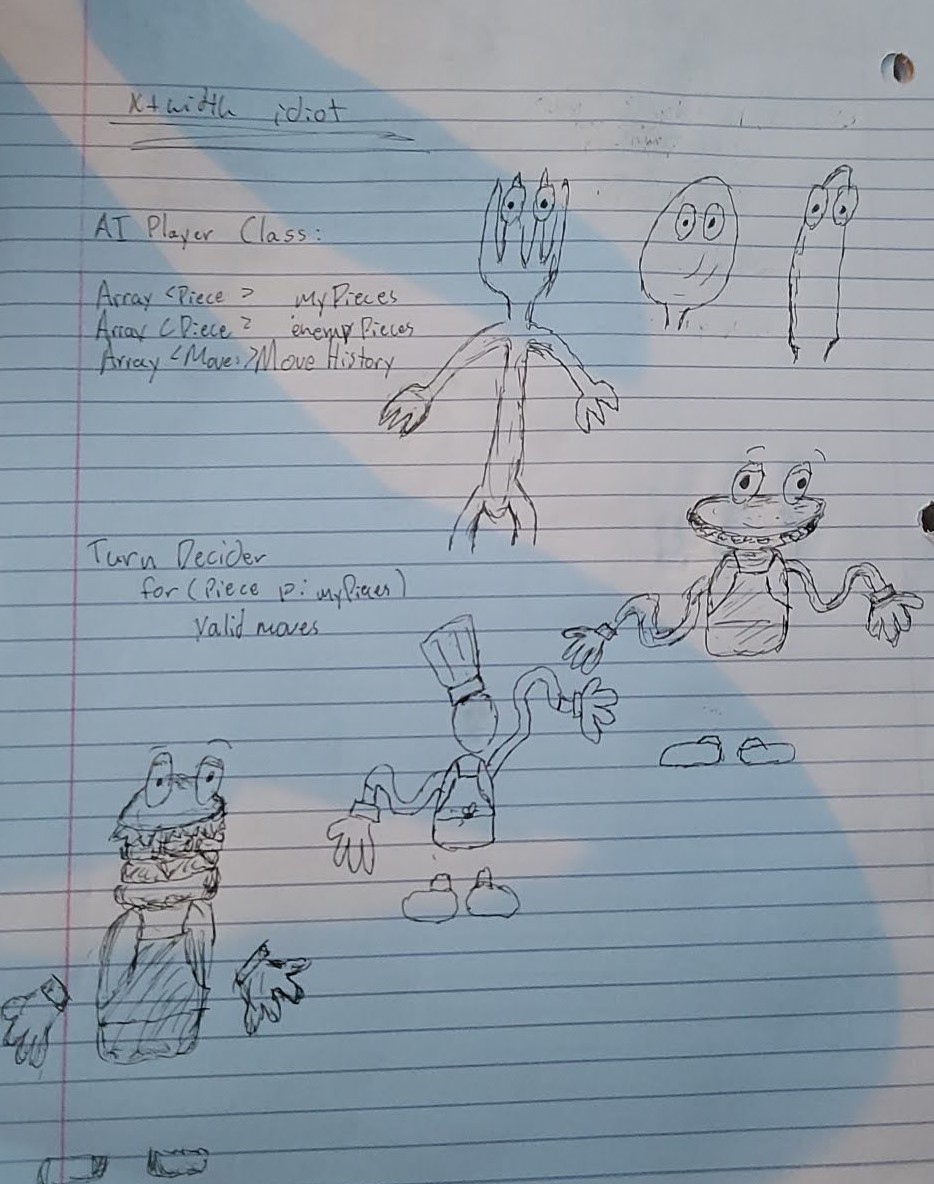 x+width idiot
AI Player Class:
Array <Piece> myPieces
Array <Piece> enemyPieces
Array <Move> Move History
Turn Decider
for (Piece p: myPieces)
Valid moves